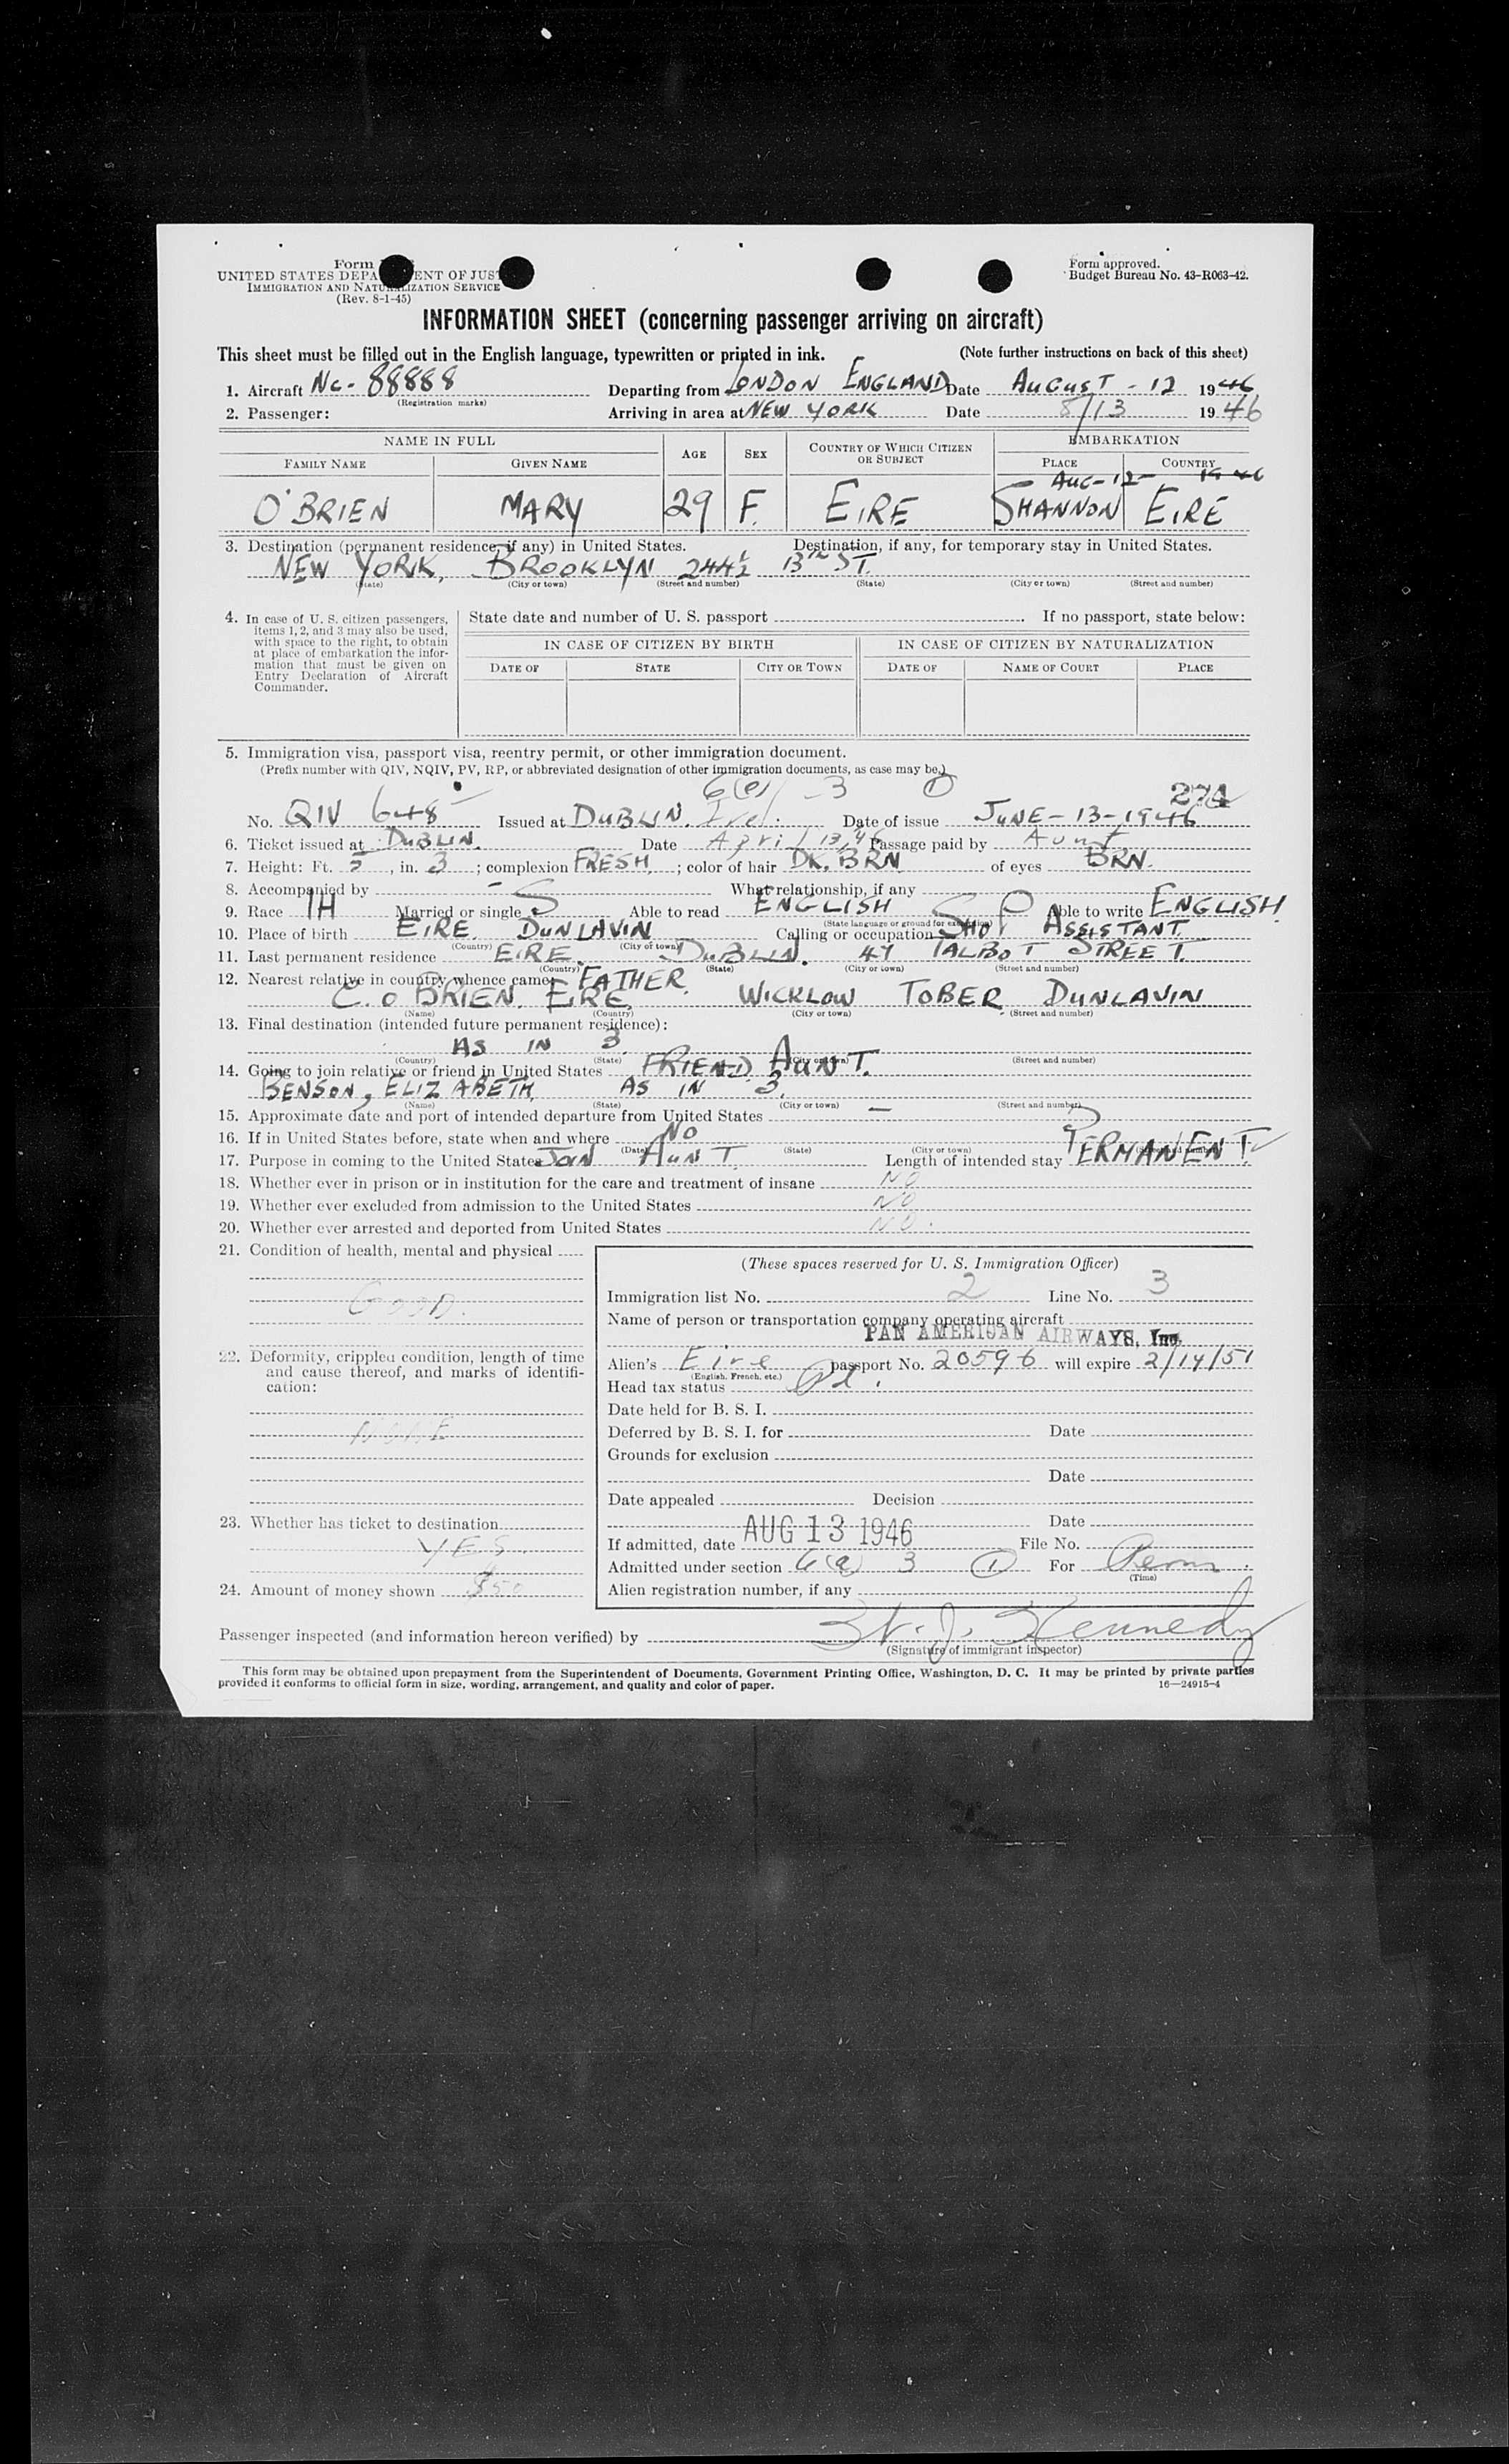 Form
UNITED STATES DEPA ENT OF JUS
IMMIGRATION AND NATURALIZATION SERVICE
(Rev. 8-1-45)
Form approved.
Budget Bureau No. 43-R063-42.
INFORMATION SHEET (concerning passenger arriving on aircraft)
This sheet must be filled out in the English language, typewritten or printed in ink. (Note further instructions on back of this sheet)
1. Aircraft Nc-88888 Departing from LONDON ENGLAND Date AUGUST-12 1946
(Registration marks)
2. Passenger: Arriving in area at NEW YORK Date 8/13 1946
NAME IN FULL AGE SEX COUNTRY OF WHICH CITIZEN OR SUBJECT EMBARKATION
FAMILY NAME GIVEN NAME PLACE COUNTRY
AUG-12- 1946
O'BRIEN MARY 29 F. EIRE SHANNON EIRE
3. Destination (permanent residence, if any) in United States. Destination, if any, for temporary stay in United States.
NEW YORK, BROOKLYN 244½ 13TH ST.
(State) (City or town) (Street and number) (State) (City or town) (Street and number)
4. In case of U. S. citizen passengers, items 1, 2, and 3 may also be used, with space to the right, to obtain at place of embarkation the information that must be given on Entry Declaration of Aircraft Commander.
State date and number of U. S. passport If no passport, state below:
IN CASE OF CITIZEN BY BIRTH IN CASE OF CITIZEN BY NATURALIZATION
DATE OF STATE CITY OR TOWN DATE OF NAME OF COURT PLACE
5. Immigration visa, passport visa, reentry permit, or other immigration document.
(Prefix number with QIV, NQIV, PV, RP, or abbreviated designation of other immigration documents, as case may be.)
6(a) -3 1 274
No. QIV 648 Issued at DUBLIN. Irel. Date of issue JUNE-13-1946
6. Ticket issued at DUBLIN. Date April 13, 46 Passage paid by Aunt
7. Height: Ft. 5, in. 3; complexion FRESH; color of hair DK. BRN. of eyes BRN.
8. Accompanied by - What relationship, if any
9. Race IH Married or single S Able to read ENGLISH Able to write ENGLISH.
(State language or ground for exemption)
10. Place of birth EIRE DUNLAVIN Calling or occupation SHOP ASSISTANT.
(Country) (City or town)
11. Last permanent residence EIRE. DUBLIN. 47 TALBOT STREET.
(Country) (State) (City or town) (Street and number)
12. Nearest relative in country whence came FATHER.
C. O BRIEN. EIRE, WICKLOW TOBER DUNLAVIN
(Name) (Country) (City or town) (Street and number)
13. Final destination (intended future permanent residence):
AS IN 3.
(Country) (State) (City or town) (Street and number)
14. Going to join relative or friend in United States FRIEND AUNT.
BENSON, ELIZABETH, AS IN 3.
(Name) (State) (City or town) (Street and number)
15. Approximate date and port of intended departure from United States —
16. If in United States before, state when and where NO
(Date) (State) (City or town) (Street and number)
17. Purpose in coming to the United States JOIN AUNT. Length of intended stay PERMANENT.
18. Whether ever in prison or in institution for the care and treatment of insane NO
19. Whether ever excluded from admission to the United States NO
20. Whether ever arrested and deported from United States NO.
21. Condition of health, mental and physical
GOOD.
22. Deformity, crippled condition, length of time and cause thereof, and marks of identification:
NONE
23. Whether has ticket to destination
YES.
24. Amount of money shown $50
(These spaces reserved for U. S. Immigration Officer)
Immigration list No. 2 Line No. 3
Name of person or transportation company operating aircraft
PAN AMERICAN AIRWAYS, Inc.
Alien's Eire passport No. 20596 will expire 2/14/51
(English, French, etc.)
Head tax status Pd.
Date held for B. S. I.
Deferred by B. S. I. for Date
Grounds for exclusion
Date
Date appealed Decision
Date
If admitted, date AUG 13 1946 File No.
Admitted under section 6(a) 3 1 For Perm.
(Time)
Alien registration number, if any
Passenger inspected (and information hereon verified) by J. Kennedy
(Signature of immigrant inspector)
This form may be obtained upon prepayment from the Superintendent of Documents, Government Printing Office, Washington, D. C. It may be printed by private parties
provided it conforms to official form in size, wording, arrangement, and quality and color of paper. 16—24915-4